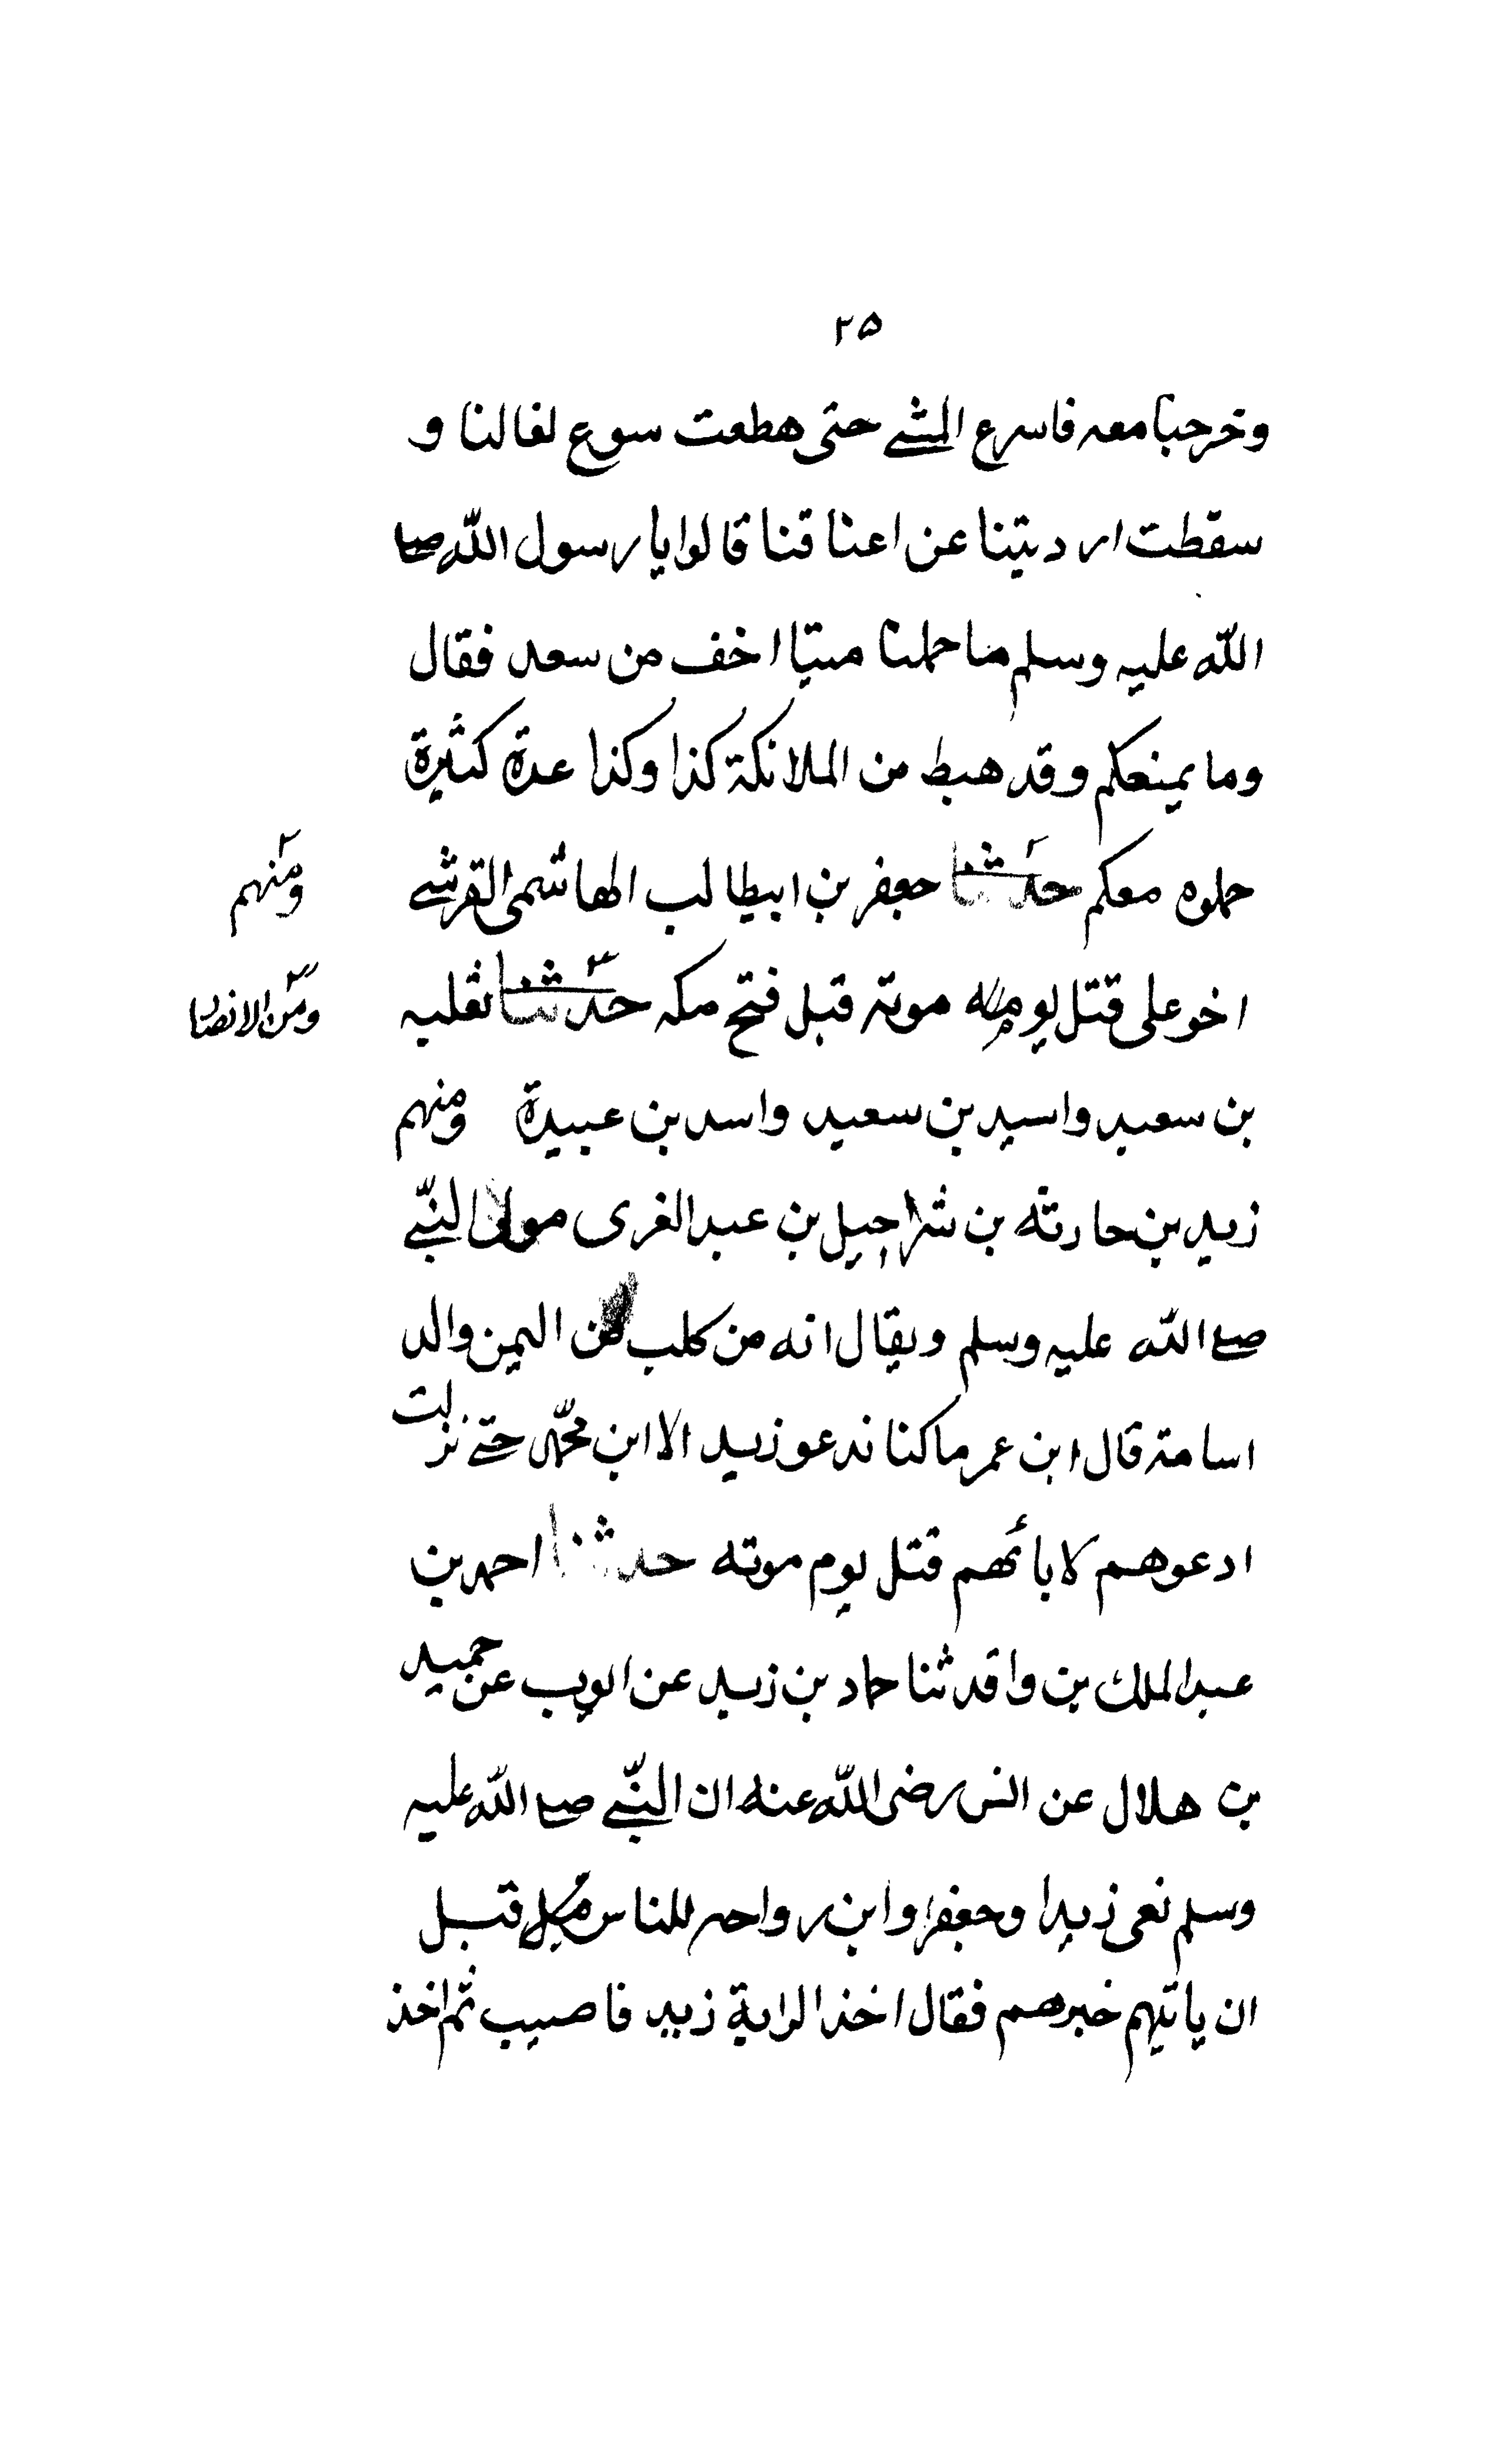 ٢٥
وخرجنا معه فاسرع المشے حتى هطعت سوع لغالنا و
سقطت ارديتنا عن اعناقنا قالوا يا رسول الله صلے
الله عليه وسلم ما حملنا ميتا اخف من سعد فقال
وما يمنعكم وقد هبط من الملائكة كذا وكذا عدة كثيرة
حملوه معكم حدثنا جعفر بن ابيطالب الهاشمى القرشے
ومنهم
اخو على قتل يوم موته قبل فتح مكه حدثنا ثعلبه
ومن الانصار
بن سعيد واسيد بن سعيد واسد بن عبيدة ومنهم
زيد بن حارثه بن شراحيل بن عبد الغرى مولى النبّے
صلے الله عليه وسلم ويقال انه من كلب من اليمن والد
اسامة قال ابن عمر ما كنا ندعو زيد الا ابن محمّد حتے نزلت
ادعوهم لابائهم قتل يوم موته حدثنا احمد بن
عبد الملك بن واقد ثنا حماد بن زيد عن ايوب عن حميد
بن هلال عن انس رضى الله عنه ان النبّے صلے الله عليه
وسلم نعى زيدا وجعفرا وابن رواحه للناس قبل
ان ياتيهم خبرهم فقال اخذ الراية زيد فاصيب ثم اخذ